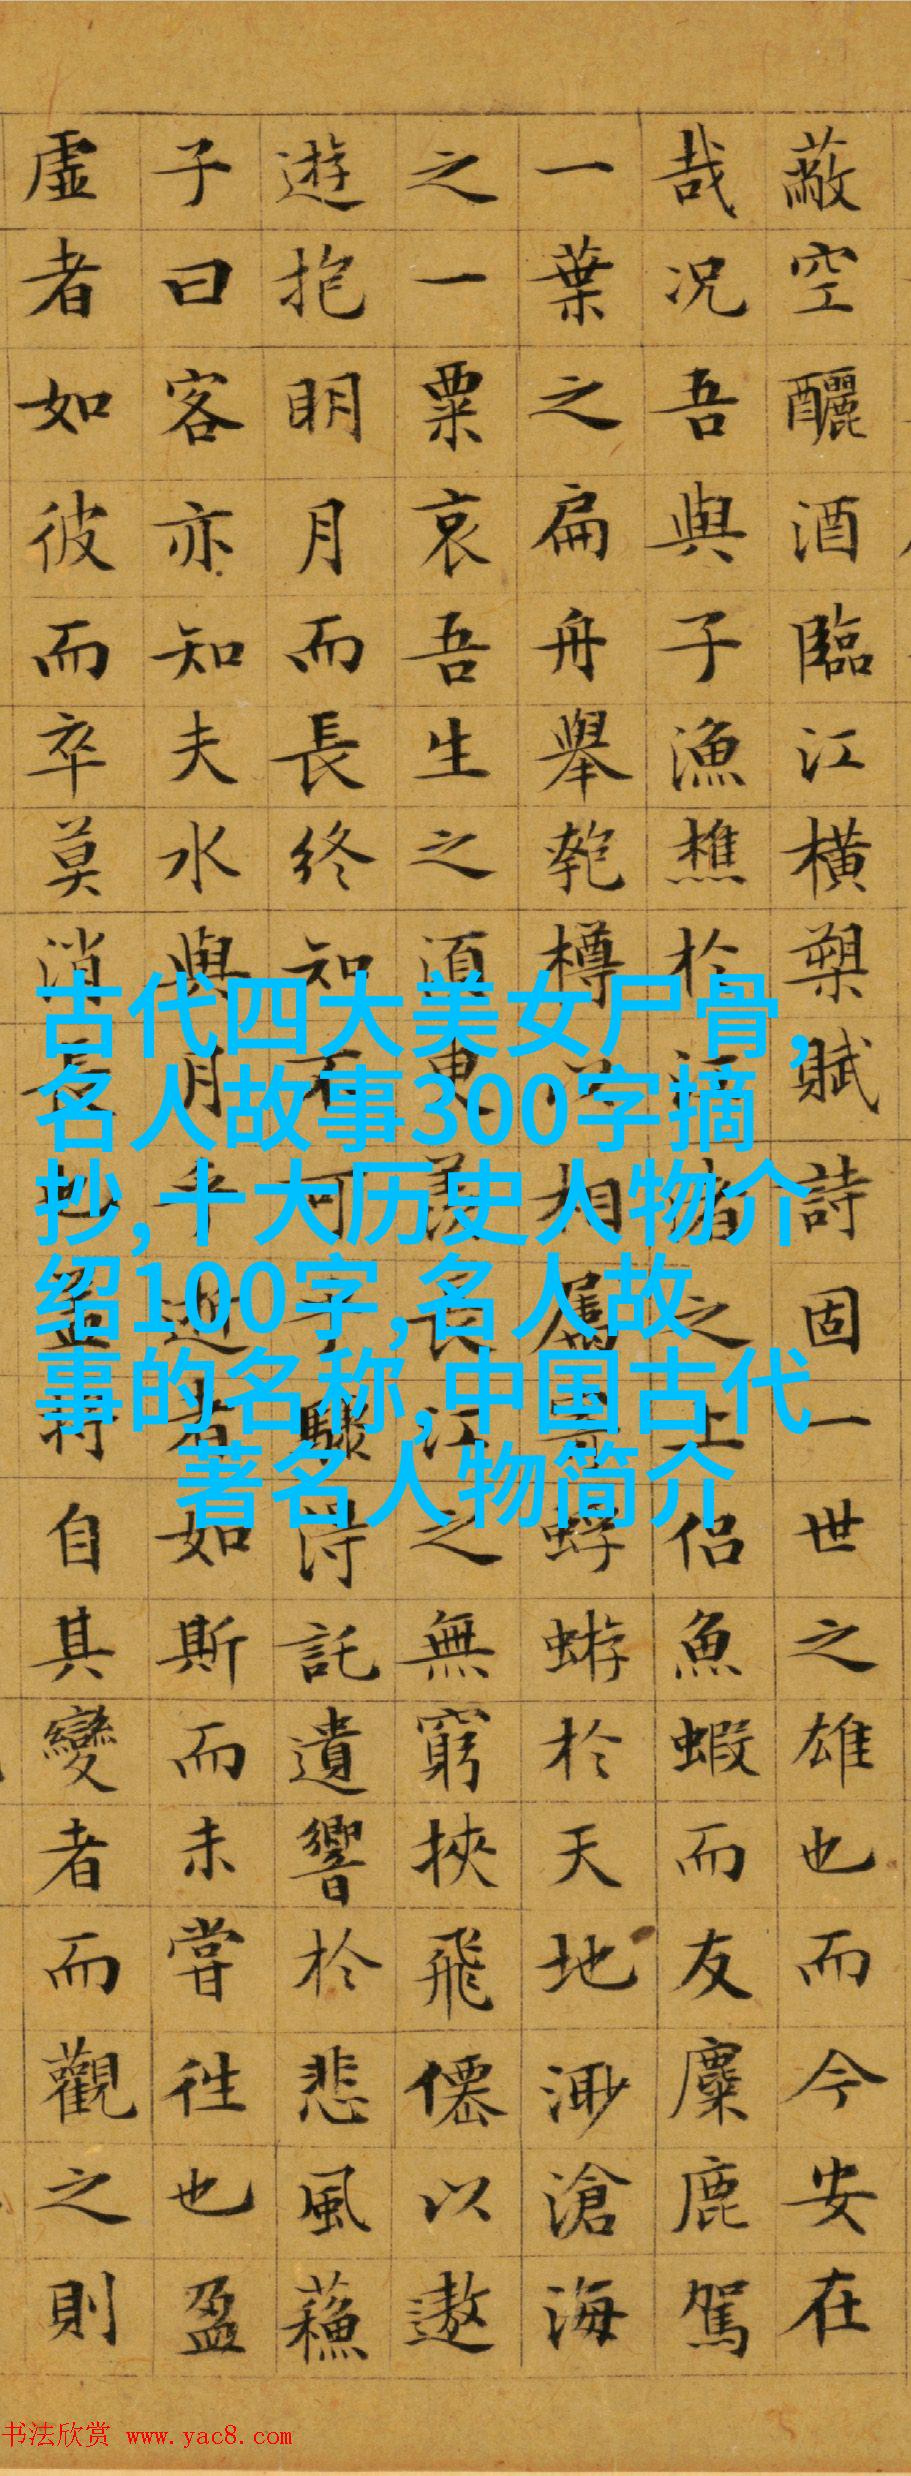 蔽空釃酒臨江橫槊賦詩固一世之雄也而今安在
哉况吾與子漁樵於江渚之上侶魚蝦而友麋鹿駕
一葉之扁舟舉匏樽以相屬寄蜉蝣於天地渺滄海
之一粟哀吾生之須臾羨長江之無窮挾飛僊以遨
遊抱明月而長終知不可乎驟得託遺響於悲風蘓
子曰客亦知夫水與月乎逝者如斯而未嘗往也盈
虛者如彼而卒莫消長也蓋將自其變者而觀之則
古代四大美女尸骨,
名人故事300字摘
抄,十大历史人物介
绍100字,名人故
事的名称,中国古代
著名人物简介
书法欣赏 www.yac8.com